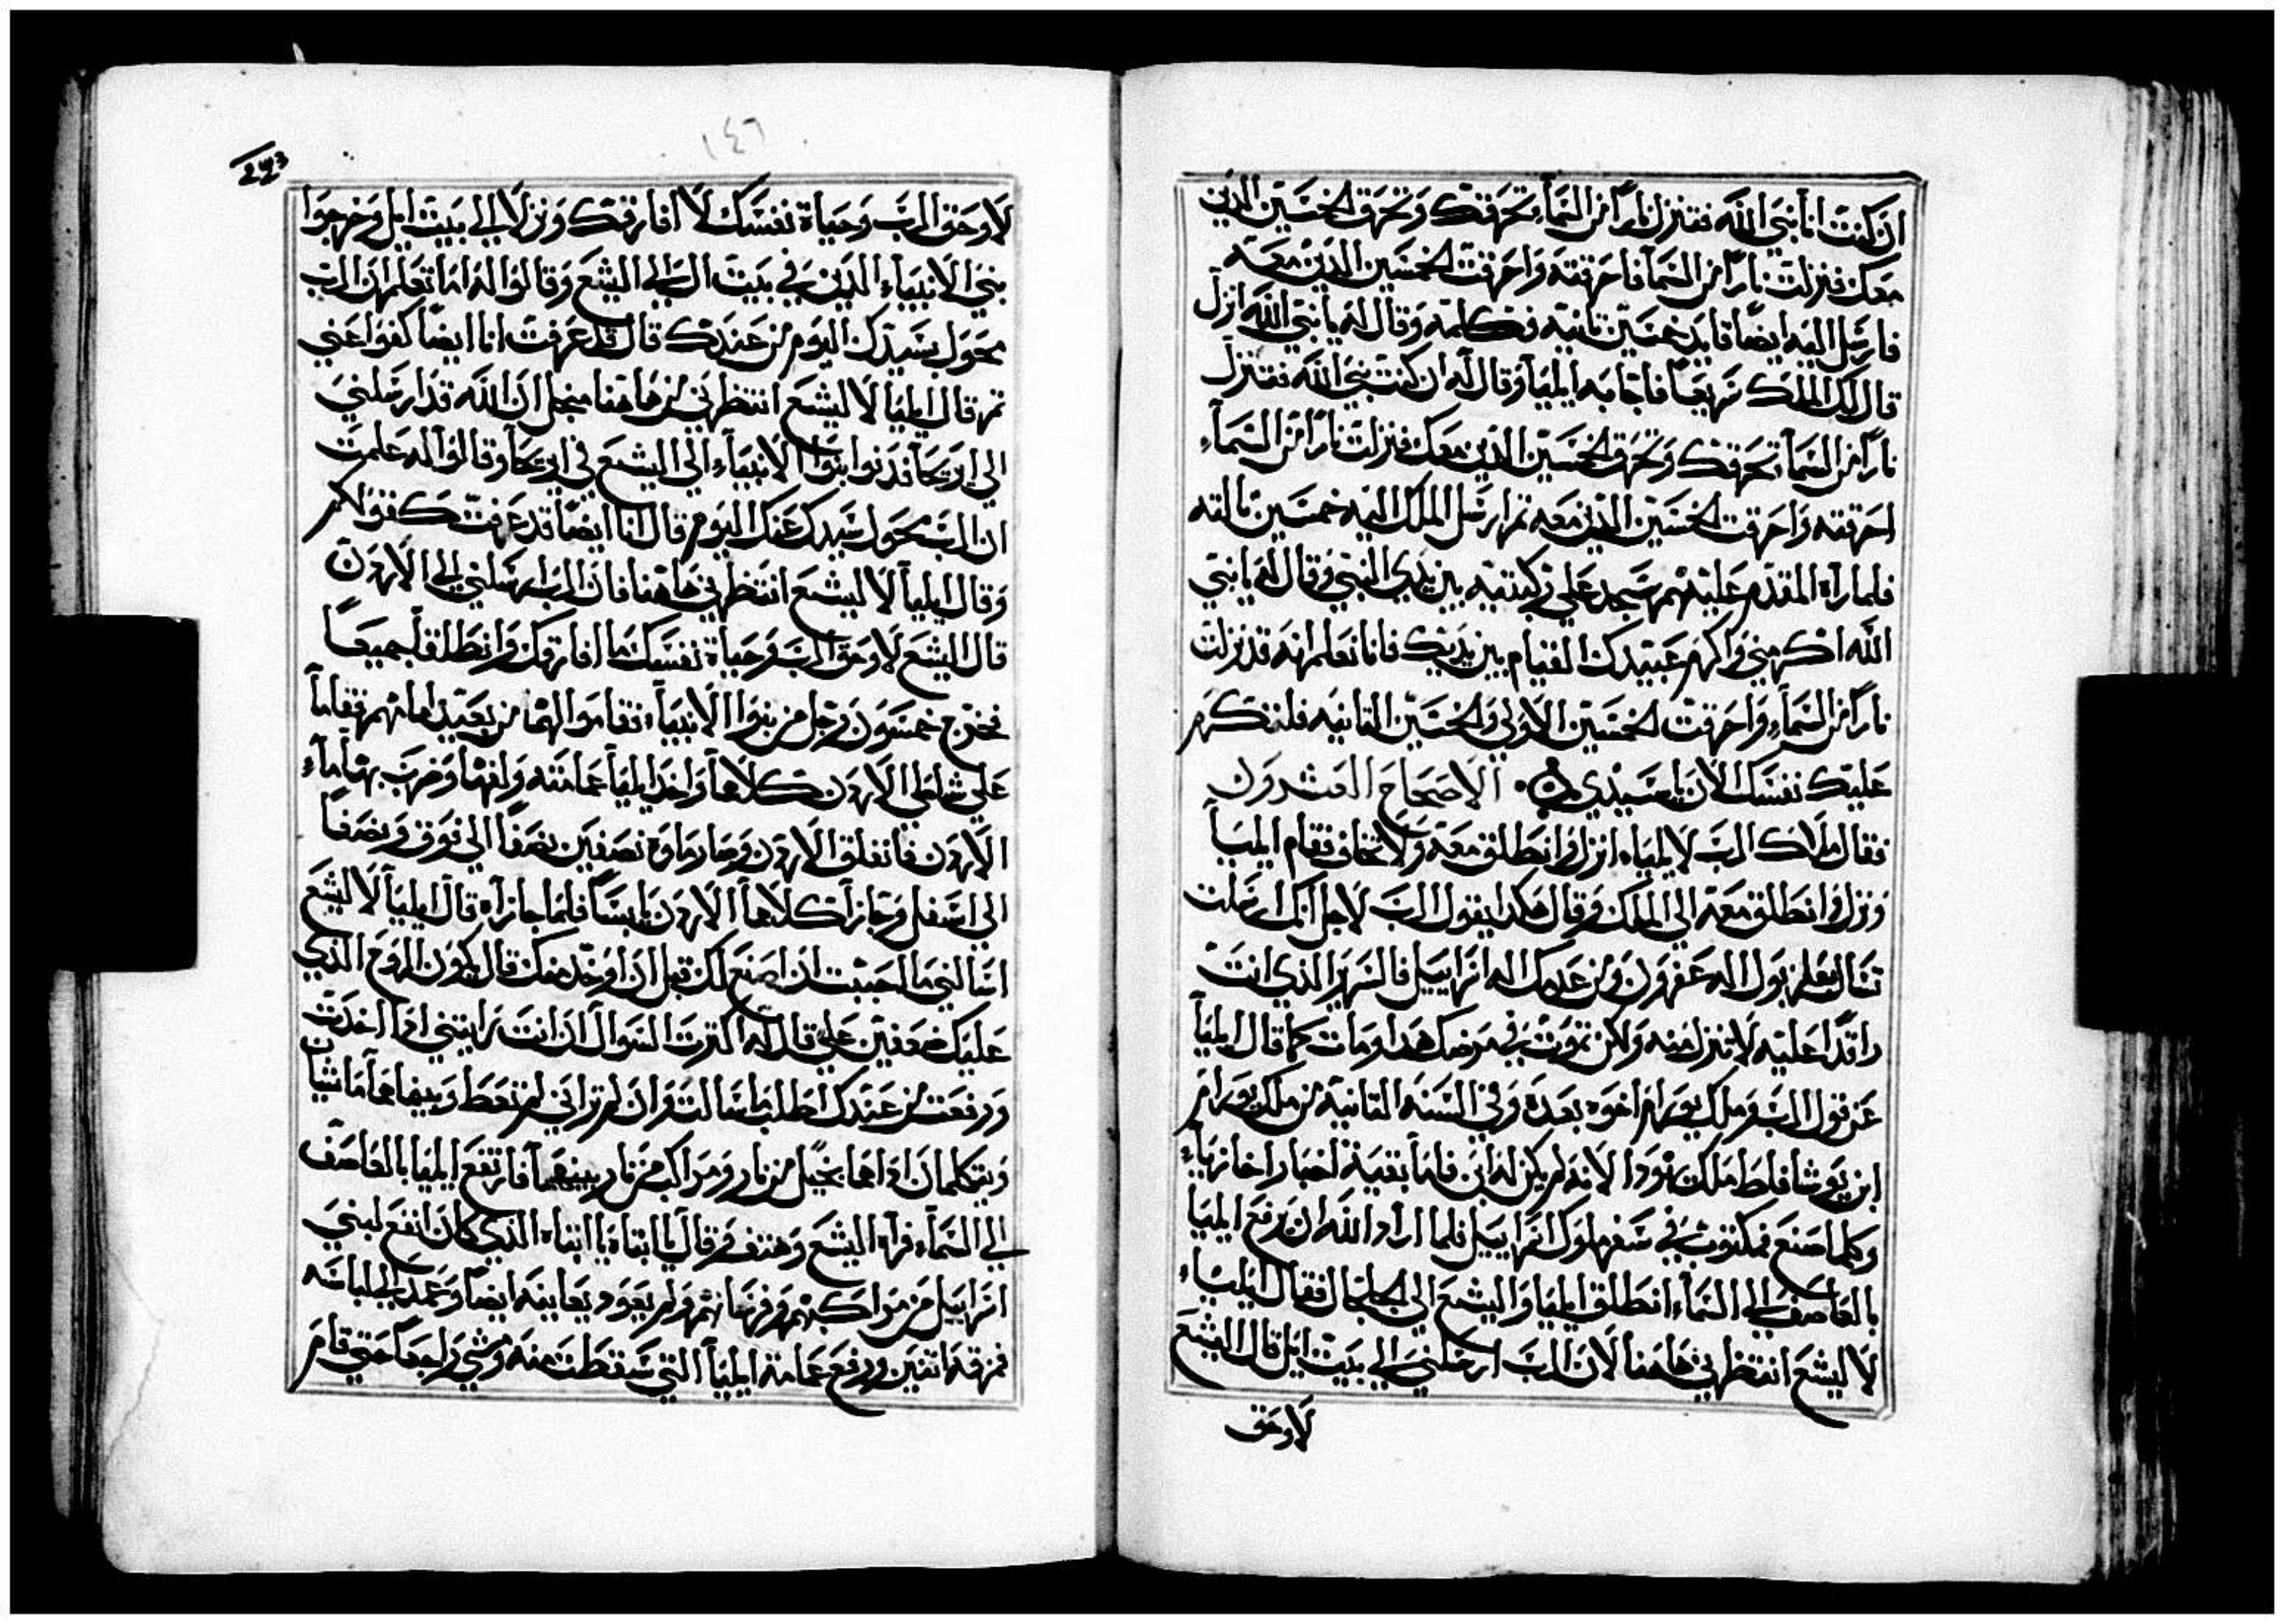 ان كنت انا نبي الله فتنزل نارًا من السمآء تحرقك وتحرق الخمسين الدين
معك فنزلت نارًا من السمآ فاحرقته واحرقت الخمسين الدين معه
فارسل اليه ايضًا قايد خمسين تانيه فكلمه وقال له يا نبي الله انزل
قال لك الملك سريعًا فاجابه ايليا وقال له ان كنت نبي الله فتنزل
نارًا من السمآ تحرقك وتحرق الخمسين الدين معك فنزلت نارًا من السمآء
احرقته واحرقت الخمسين الدين معه تم ارسل الملك اليه خمسين تالته
فلما رآه المقدم عليهم سجد على ركبتيه بين يدي النبي وقال له يا نبي
الله اكرمني واكرم عبيدك القيام بين يديك فانا نعلم انه قد نزلت
نارًا من السمآء واحرقت الخمسين الاولي والخمسين التانيه فلتكرم
عليك نفسك الان يا سيدي الاصحاح العشرون
فقال ملاك الرب لايلياء انزل وانطلق معه ولا تخاف فقام ايليا
ونزل وانطلق معه الى الملك وقال هكدا يقول الرب لاجل انك ارسلت
تسال بعلزبول اله عفرون ومن عدمك اله اسراييل فالسرير الذي انت
راقدًا عليه لا تنزل منه ولكن تموت في مرضك هدا ومات كما قال ايليا
عن قول الرب وملك يورام اخوه بعده وفي السنه التانية من ملك يورام
ابن يوشافاط ملك يهودا لانه لم يكن له ابن فاما بقية اخبار اخازياء
وكلما صنع فمكتوب في سفر ملوك اسراييل فلما اراد الله ان يرفع ايليا
بالعاصف الى السمآء انطلق ايليا واليشع الى الجلجال فقال ايلياء
لاليشع انتظرني هاهنا لان الرب ارسلني الى بيت ايل قال اليشع
لاوحق
١٤٦
لاوحق الرب وحياة نفسك لا افارقك ونزلا الى بيت ايل وخرجوا
بني الانبياء الدين في بيت ال الى اليشع وقالوا له اما تعلم ان الرب
محول سيدك اليوم من عندك قال قد عرفت انا ايضًا كفوا عني
تم قال ايليا لاليشع انتظرني هاهنا منجل ان الله قد ارسلني
الى اريحا فدنوا بنوا الانبياء الى اليشع في اريحا وقالوا له علمت
ان الرب محول سيدك عنك اليوم قال انا ايضًا قد عرفت كفوا
وقال ايليا لاليشع انتظرني هاهنا فان الرب ارسلني الى الاردن
قال اليشع لاوحق الرب وحياة نفسك ما افارقك وانطلقا جميعًا
فخرج خمسون رجل من بنوا الانبياء فقاموا لهما من بعيد امامهم فقاما
على شاطي الاردن كلاهما واخد ايليا عمامته ولفها وضرب بها ماء
الاردن فانفلق الاردن وصار ماوه نصفين نصفًا الى فوق ونصفًا
الى اسفل وجازا كلاهما الاردن يابسًا فلما جازاه قال ايليا لاليشع
اسالني ما احببت ان اصنع لك قبل ان اوخد منك قال يكون الروح الذي
عليك ضعفين علي قال له اكترت السوال ان انت رايتني ادا اخدت
ورفعت من عندك اطلب ما سالت وان لم تراني لم تعط وبينما هما ماشيان
ويتكلمان ادا هما بخيل من نار ومراكب من نار بينهما فارتفع ايليا بالعاصف
الى السمآء فرآه اليشع وهتف وقال يا ابتاه يا ابتاه الذي كان انفع لبني
اسراييل من مراكبهم وفرسانهم ولم يعود يعاينه ايضًا وعمد الى لباسه
فمزقه اتنين ورفع عمامة ايليا التي سقطت منه ومشي راجعًا حتي قام